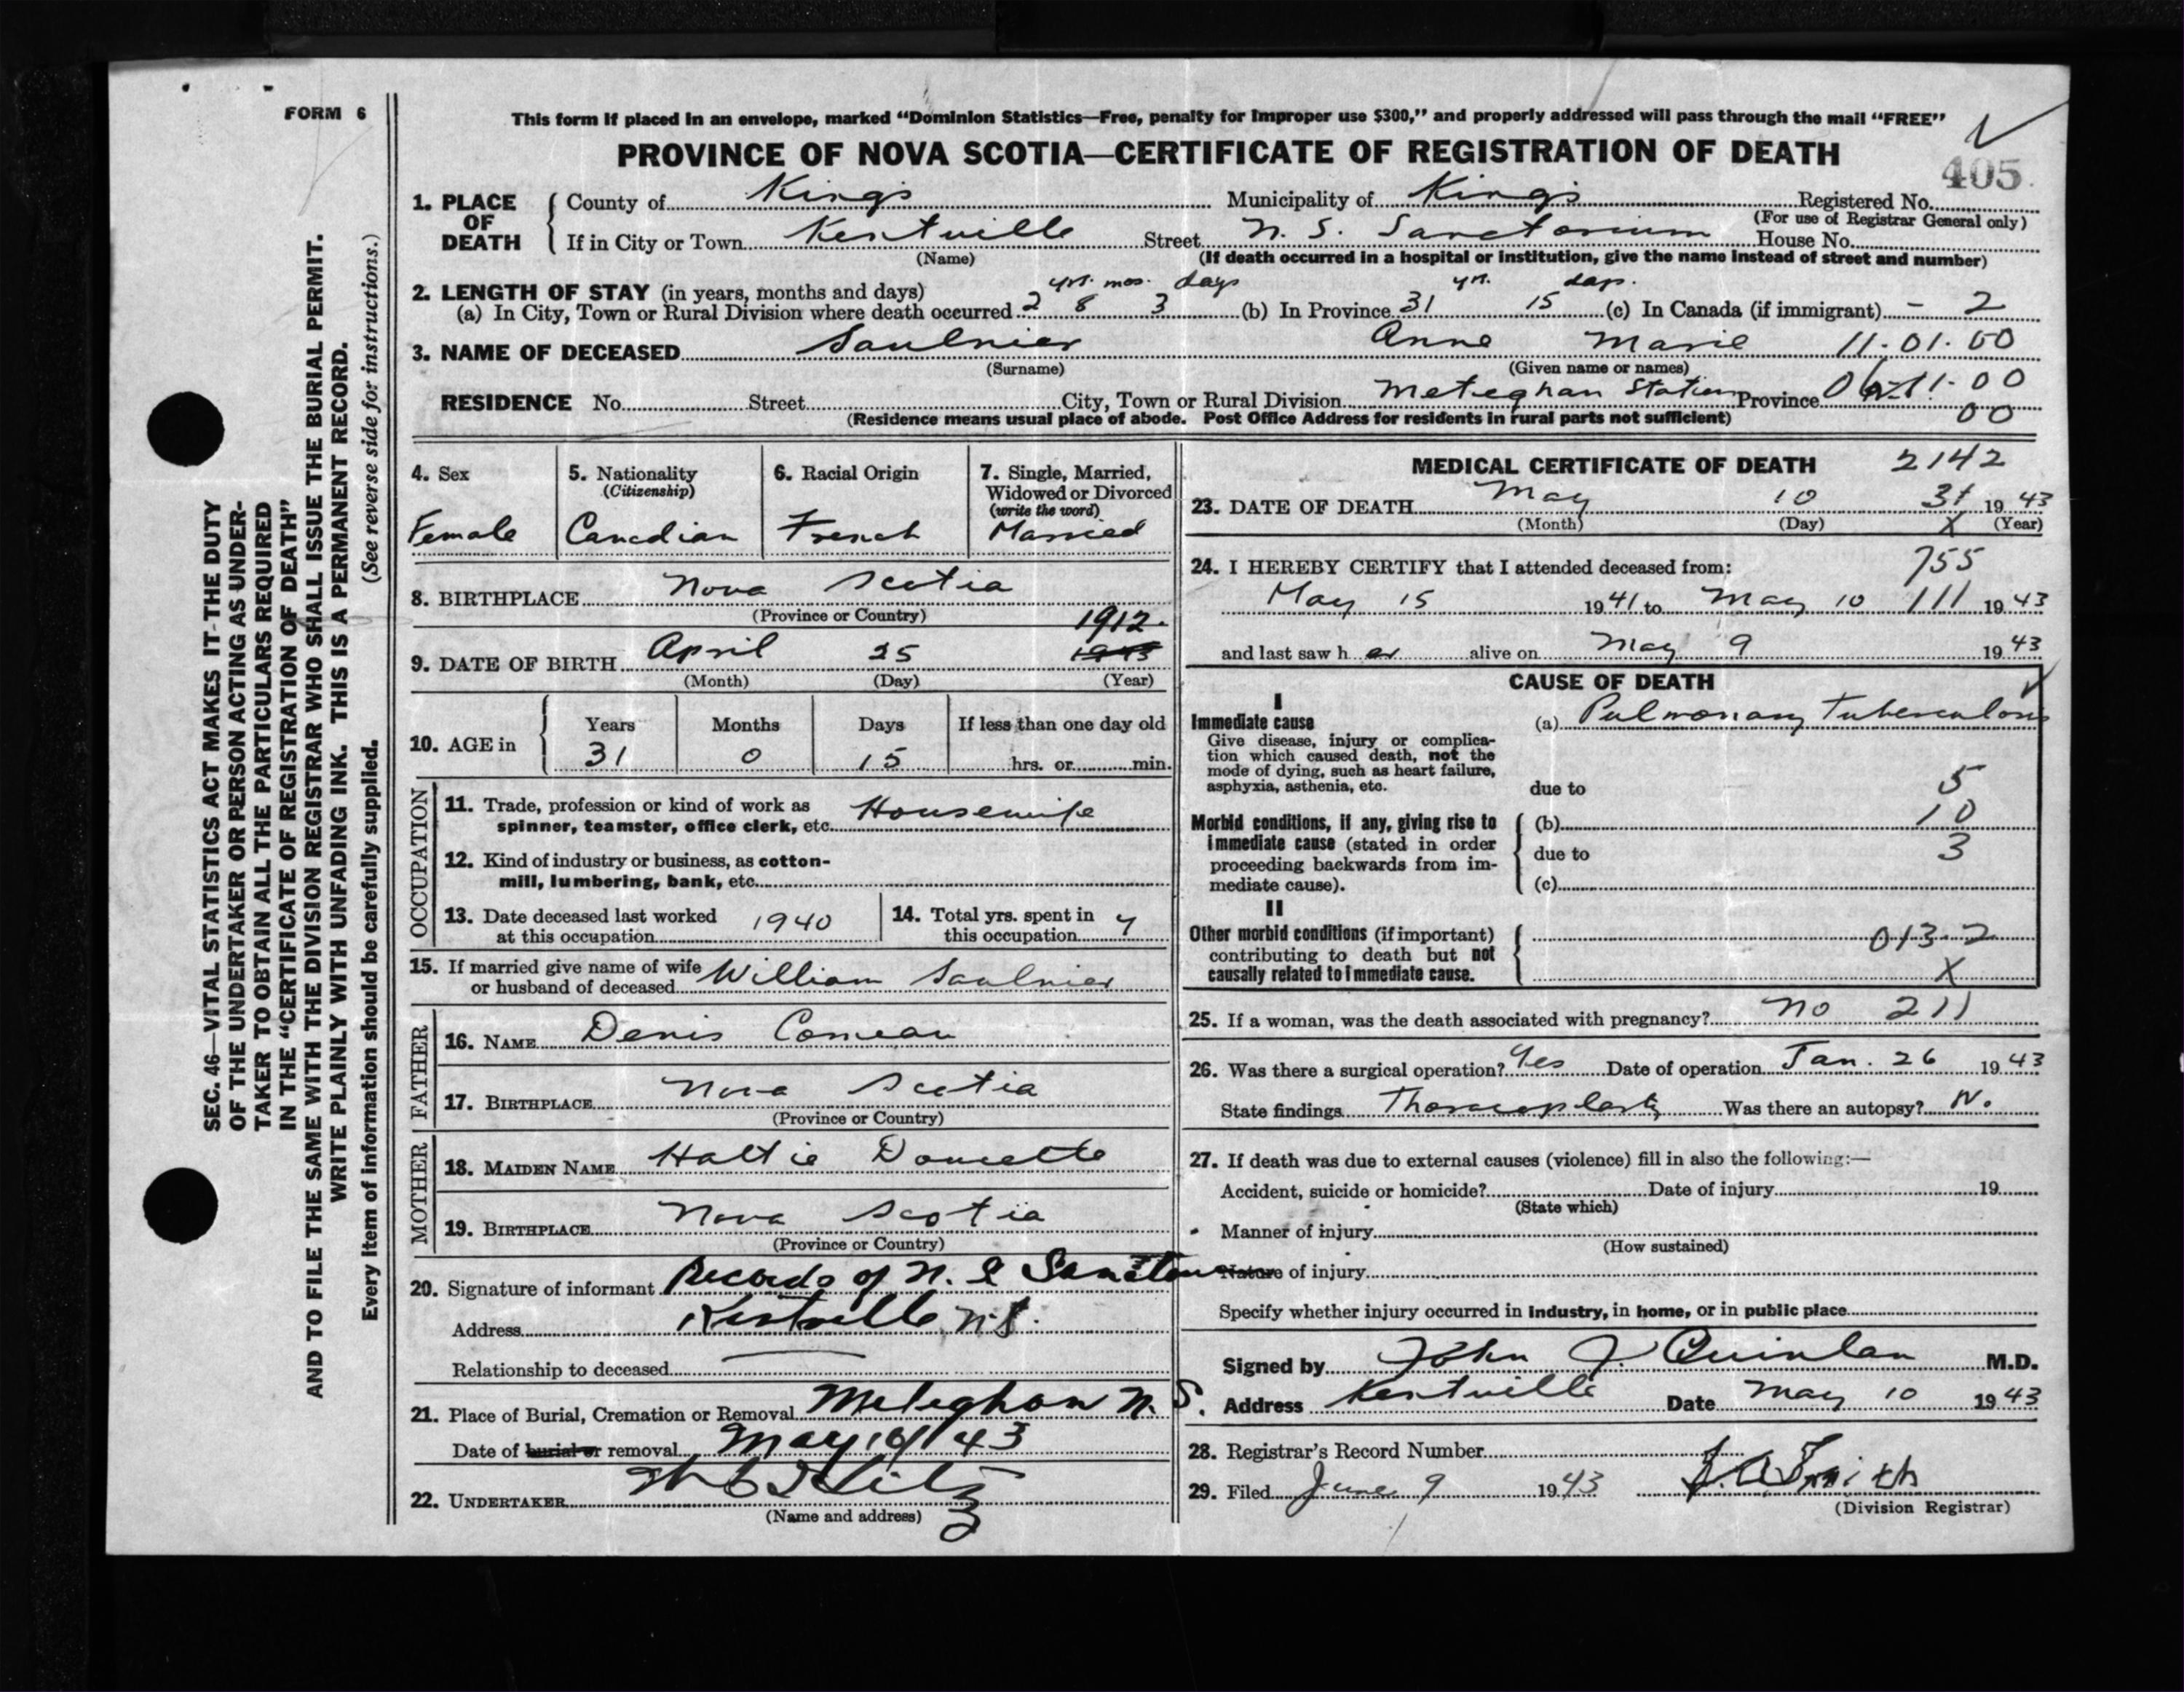 FORM 6
This form if placed in an envelope, marked “Dominion Statistics—Free, penalty for improper use $300,” and properly addressed will pass through the mail “FREE”
PROVINCE OF NOVA SCOTIA—CERTIFICATE OF REGISTRATION OF DEATH
405
1. PLACE OF DEATH County of Kings Municipality of Kings Registered No.
(For use of Registrar General only)
If in City or Town Kentville Street N. S. Sanctorium House No.
(Name) (If death occurred in a hospital or institution, give the name instead of street and number)
2. LENGTH OF STAY (in years, months and days) yrs. mos. days yrs. days.
(a) In City, Town or Rural Division where death occurred 2 8 3 (b) In Province 31 15 (c) In Canada (if immigrant) - 2
3. NAME OF DECEASED Saulnier Anne Marie 11-01-00
(Surname) (Given name or names)
RESIDENCE No. Street City, Town or Rural Division Meteghan Station Province
00
(Residence means usual place of abode. Post Office Address for residents in rural parts not sufficient)
4. Sex
Female
5. Nationality
(Citizenship)
Canadian
6. Racial Origin
French
7. Single, Married,
Widowed or Divorced
(write the word)
Married
8. BIRTHPLACE Nova Scotia
(Province or Country)
1912.
9. DATE OF BIRTH April 25 1943
(Month) (Day) (Year)
10. AGE in Years Months Days If less than one day old
31 0 15 hrs. or min.
OCCUPATION
11. Trade, profession or kind of work as
spinner, teamster, office clerk, etc. Housewife
12. Kind of industry or business, as cotton-
mill, lumbering, bank, etc.
13. Date deceased last worked
at this occupation 1940
14. Total yrs. spent in
this occupation 7
15. If married give name of wife
or husband of deceased William Saulnier
FATHER
16. NAME Denis Comeau
17. BIRTHPLACE Nova Scotia
(Province or Country)
MOTHER
18. MAIDEN NAME Hattie Doucette
19. BIRTHPLACE Nova Scotia
(Province or Country)
20. Signature of informant Records of N. S
Address Kentville N.S.
Relationship to deceased
21. Place of Burial, Cremation or Removal Meteghan N. S.
Date of burial or removal May 10/43
22. UNDERTAKER
(Name and address)
MEDICAL CERTIFICATE OF DEATH 2142
23. DATE OF DEATH May 10 31 1943
(Month) (Day) X (Year)
24. I HEREBY CERTIFY that I attended deceased from: 755
May 15 1941 to May 10 111 1943
and last saw her alive on May 9 1943
CAUSE OF DEATH
I
Immediate cause
Give disease, injury or complica-
tion which caused death, not the
mode of dying, such as heart failure,
asphyxia, asthenia, etc.
(a) Pulmonary Tuberculosis
due to 5
10
Morbid conditions, if any, giving rise to
immediate cause (stated in order
proceeding backwards from im-
mediate cause).
(b)
due to 3
(c)
II
Other morbid conditions (if important)
contributing to death but not
causally related to immediate cause.
013-2
X
25. If a woman, was the death associated with pregnancy? no 211
26. Was there a surgical operation? Yes Date of operation Jan. 26 1943
State findings Thoracoplasty Was there an autopsy? N.
27. If death was due to external causes (violence) fill in also the following:—
Accident, suicide or homicide? Date of injury 19
(State which)
Manner of injury
(How sustained)
Nature of injury
Specify whether injury occurred in industry, in home, or in public place
Signed by John J. Quinlan M.D.
Address Kentville Date May 10 1943
28. Registrar's Record Number
29. Filed June 9 1943
(Division Registrar)
SEC. 46—VITAL STATISTICS ACT MAKES IT THE DUTY
OF THE UNDERTAKER OR PERSON ACTING AS UNDER-
TAKER TO OBTAIN ALL THE PARTICULARS REQUIRED
IN THE “CERTIFICATE OF REGISTRATION OF DEATH”
AND TO FILE THE SAME WITH THE DIVISION REGISTRAR WHO SHALL ISSUE THE BURIAL PERMIT.
WRITE PLAINLY WITH UNFADING INK. THIS IS A PERMANENT RECORD.
Every item of information should be carefully supplied. (See reverse side for instructions.)